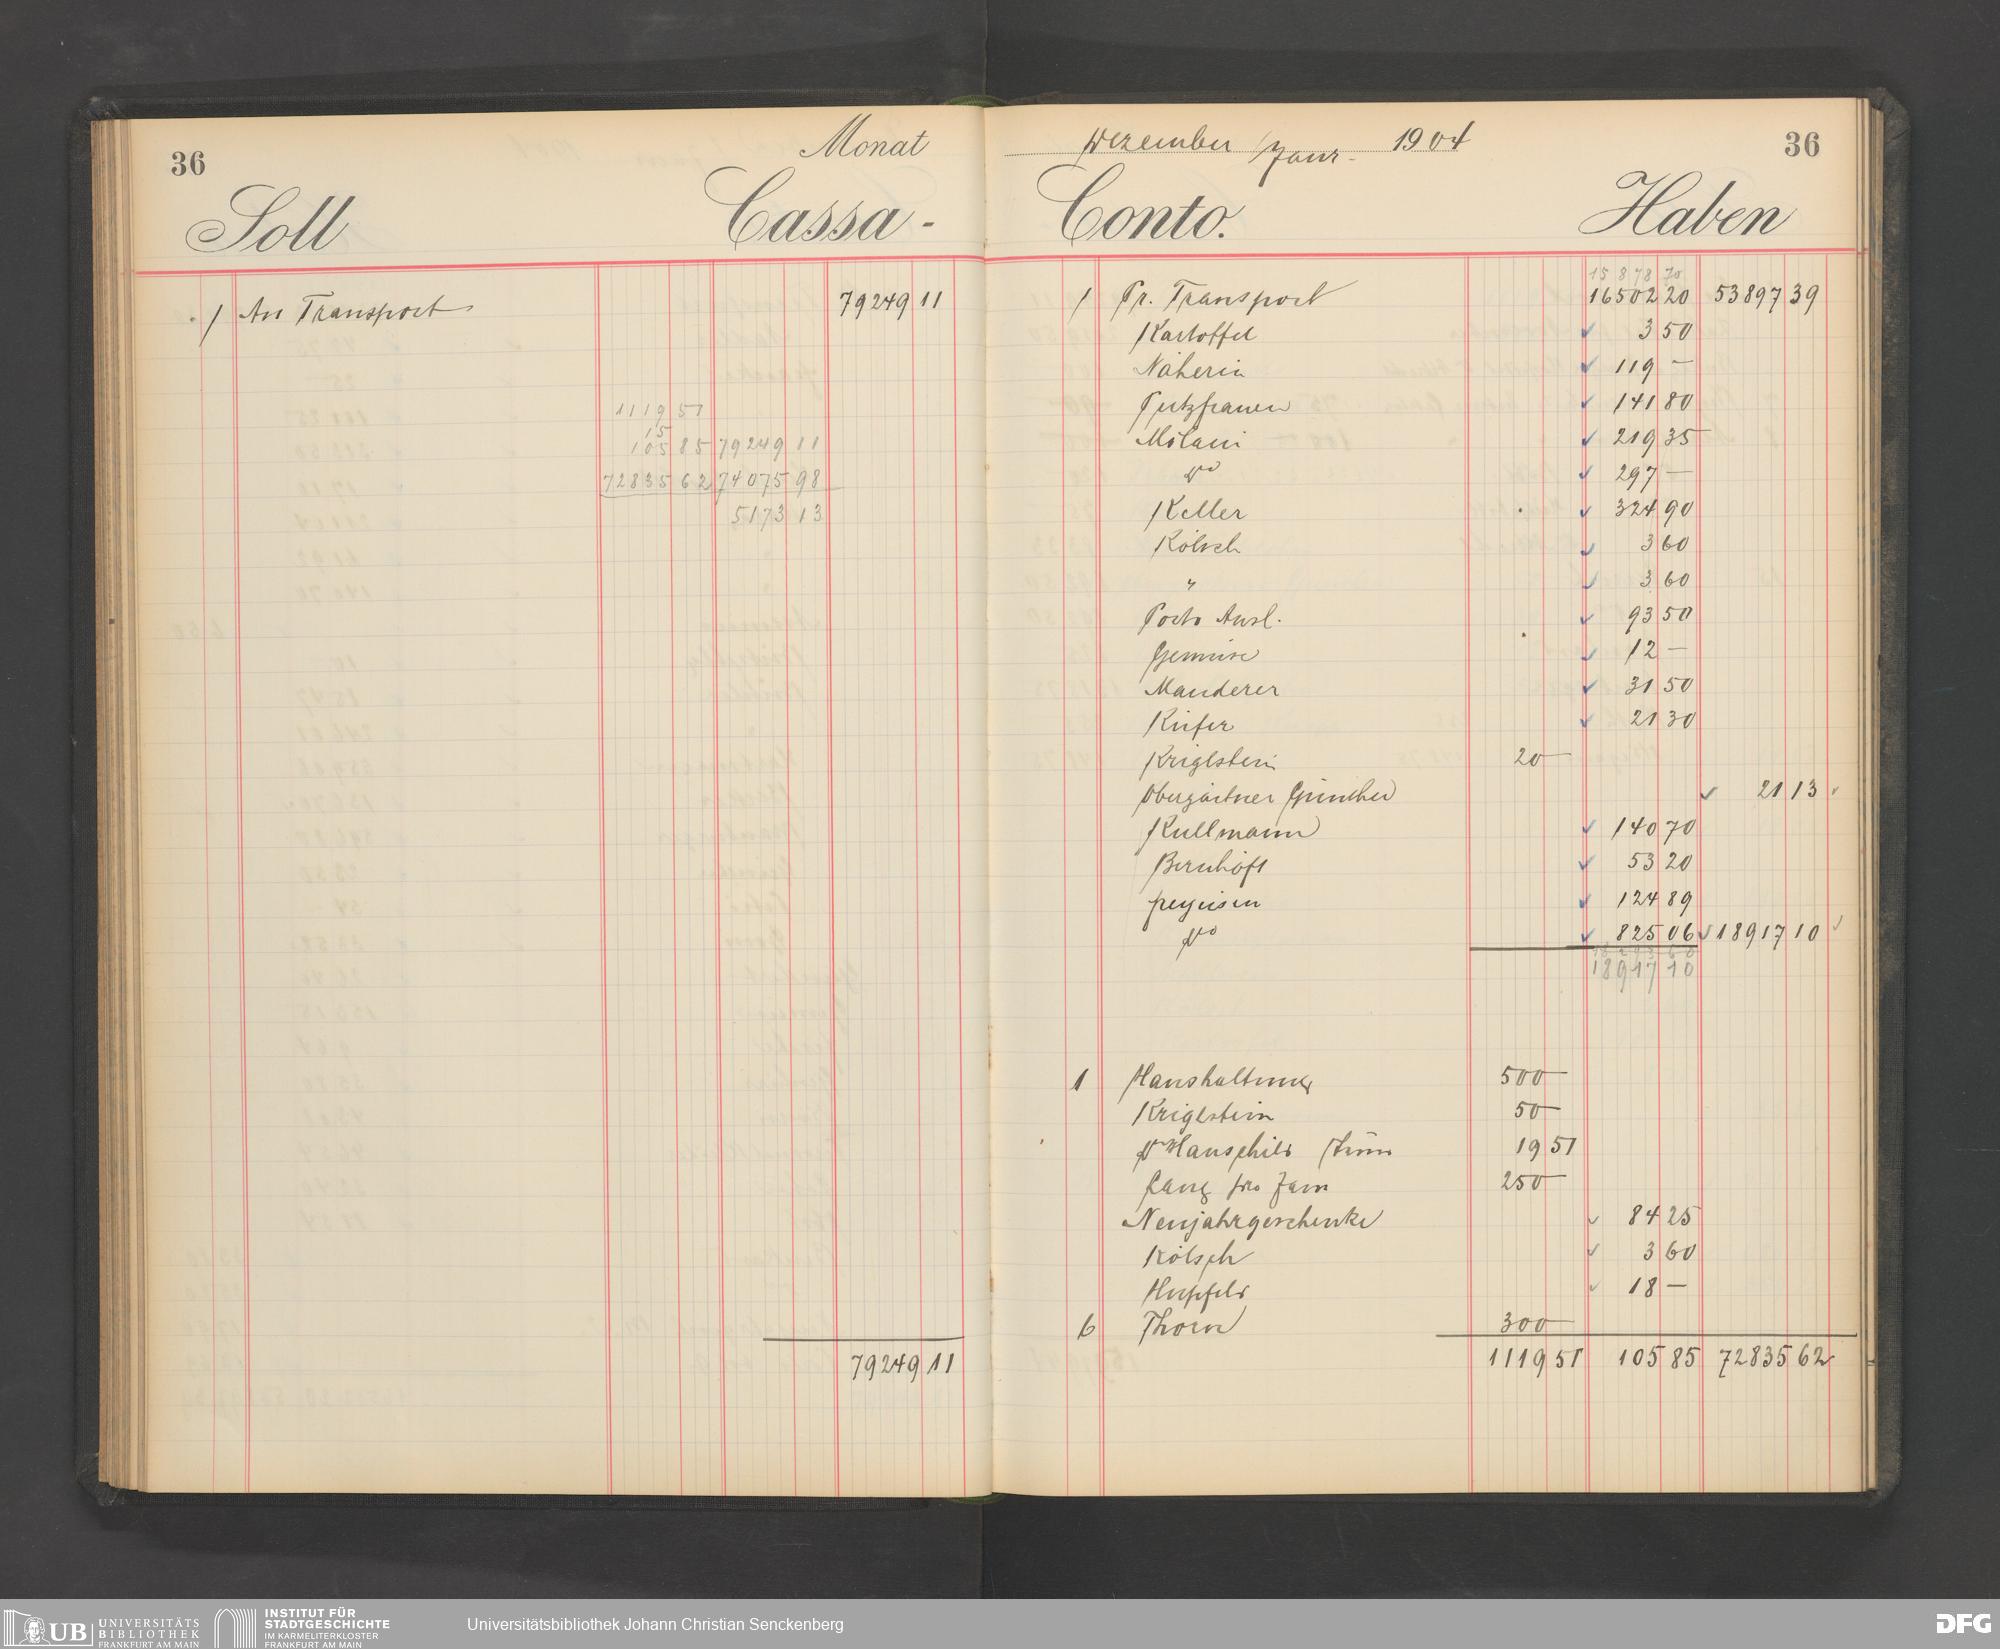 36
Monat
Soll
Cassa-
1 An Transport 79249 11
1119 51
15
105 85 79249 11
72835 62 74075 98
5173 13
79249 11
Dezember / Janr. 1904
36
Conto.
Haben
15878 70
1 Pr. Transport 16502 20 53897 39
Kartoffel 3 50
Näherin 119 —
Putzfrauen 141 80
Milani 219 35
do 297 —
Keller 324 90
Kölsch 3 60
" 3 60
Porto Ausl. 93 50
Gemüse 12 —
Manderer 31 50
Kiefer 21 30
Kriglstein 20 —
Obergärtner Günther 21 13
Kullmann 140 70
Bernhöft 53 20
124 89
do 825 06 18917 10
18917 10
1 Haushaltung 500 —
Kriglstein 50 —
19 51
Lang pro Jan 250 —
Neujahrgeschenke 84 25
Kölsch 3 60
Hupfeld 18 —
6 Thorn 300 —
1119 51 105 85 72835 62
UB UNIVERSITÄTS
BIBLIOTHEK
FRANKFURT AM MAIN
INSTITUT FÜR
STADTGESCHICHTE
IM KARMELITERKLOSTER
FRANKFURT AM MAIN
Universitätsbibliothek Johann Christian Senckenberg
DFG